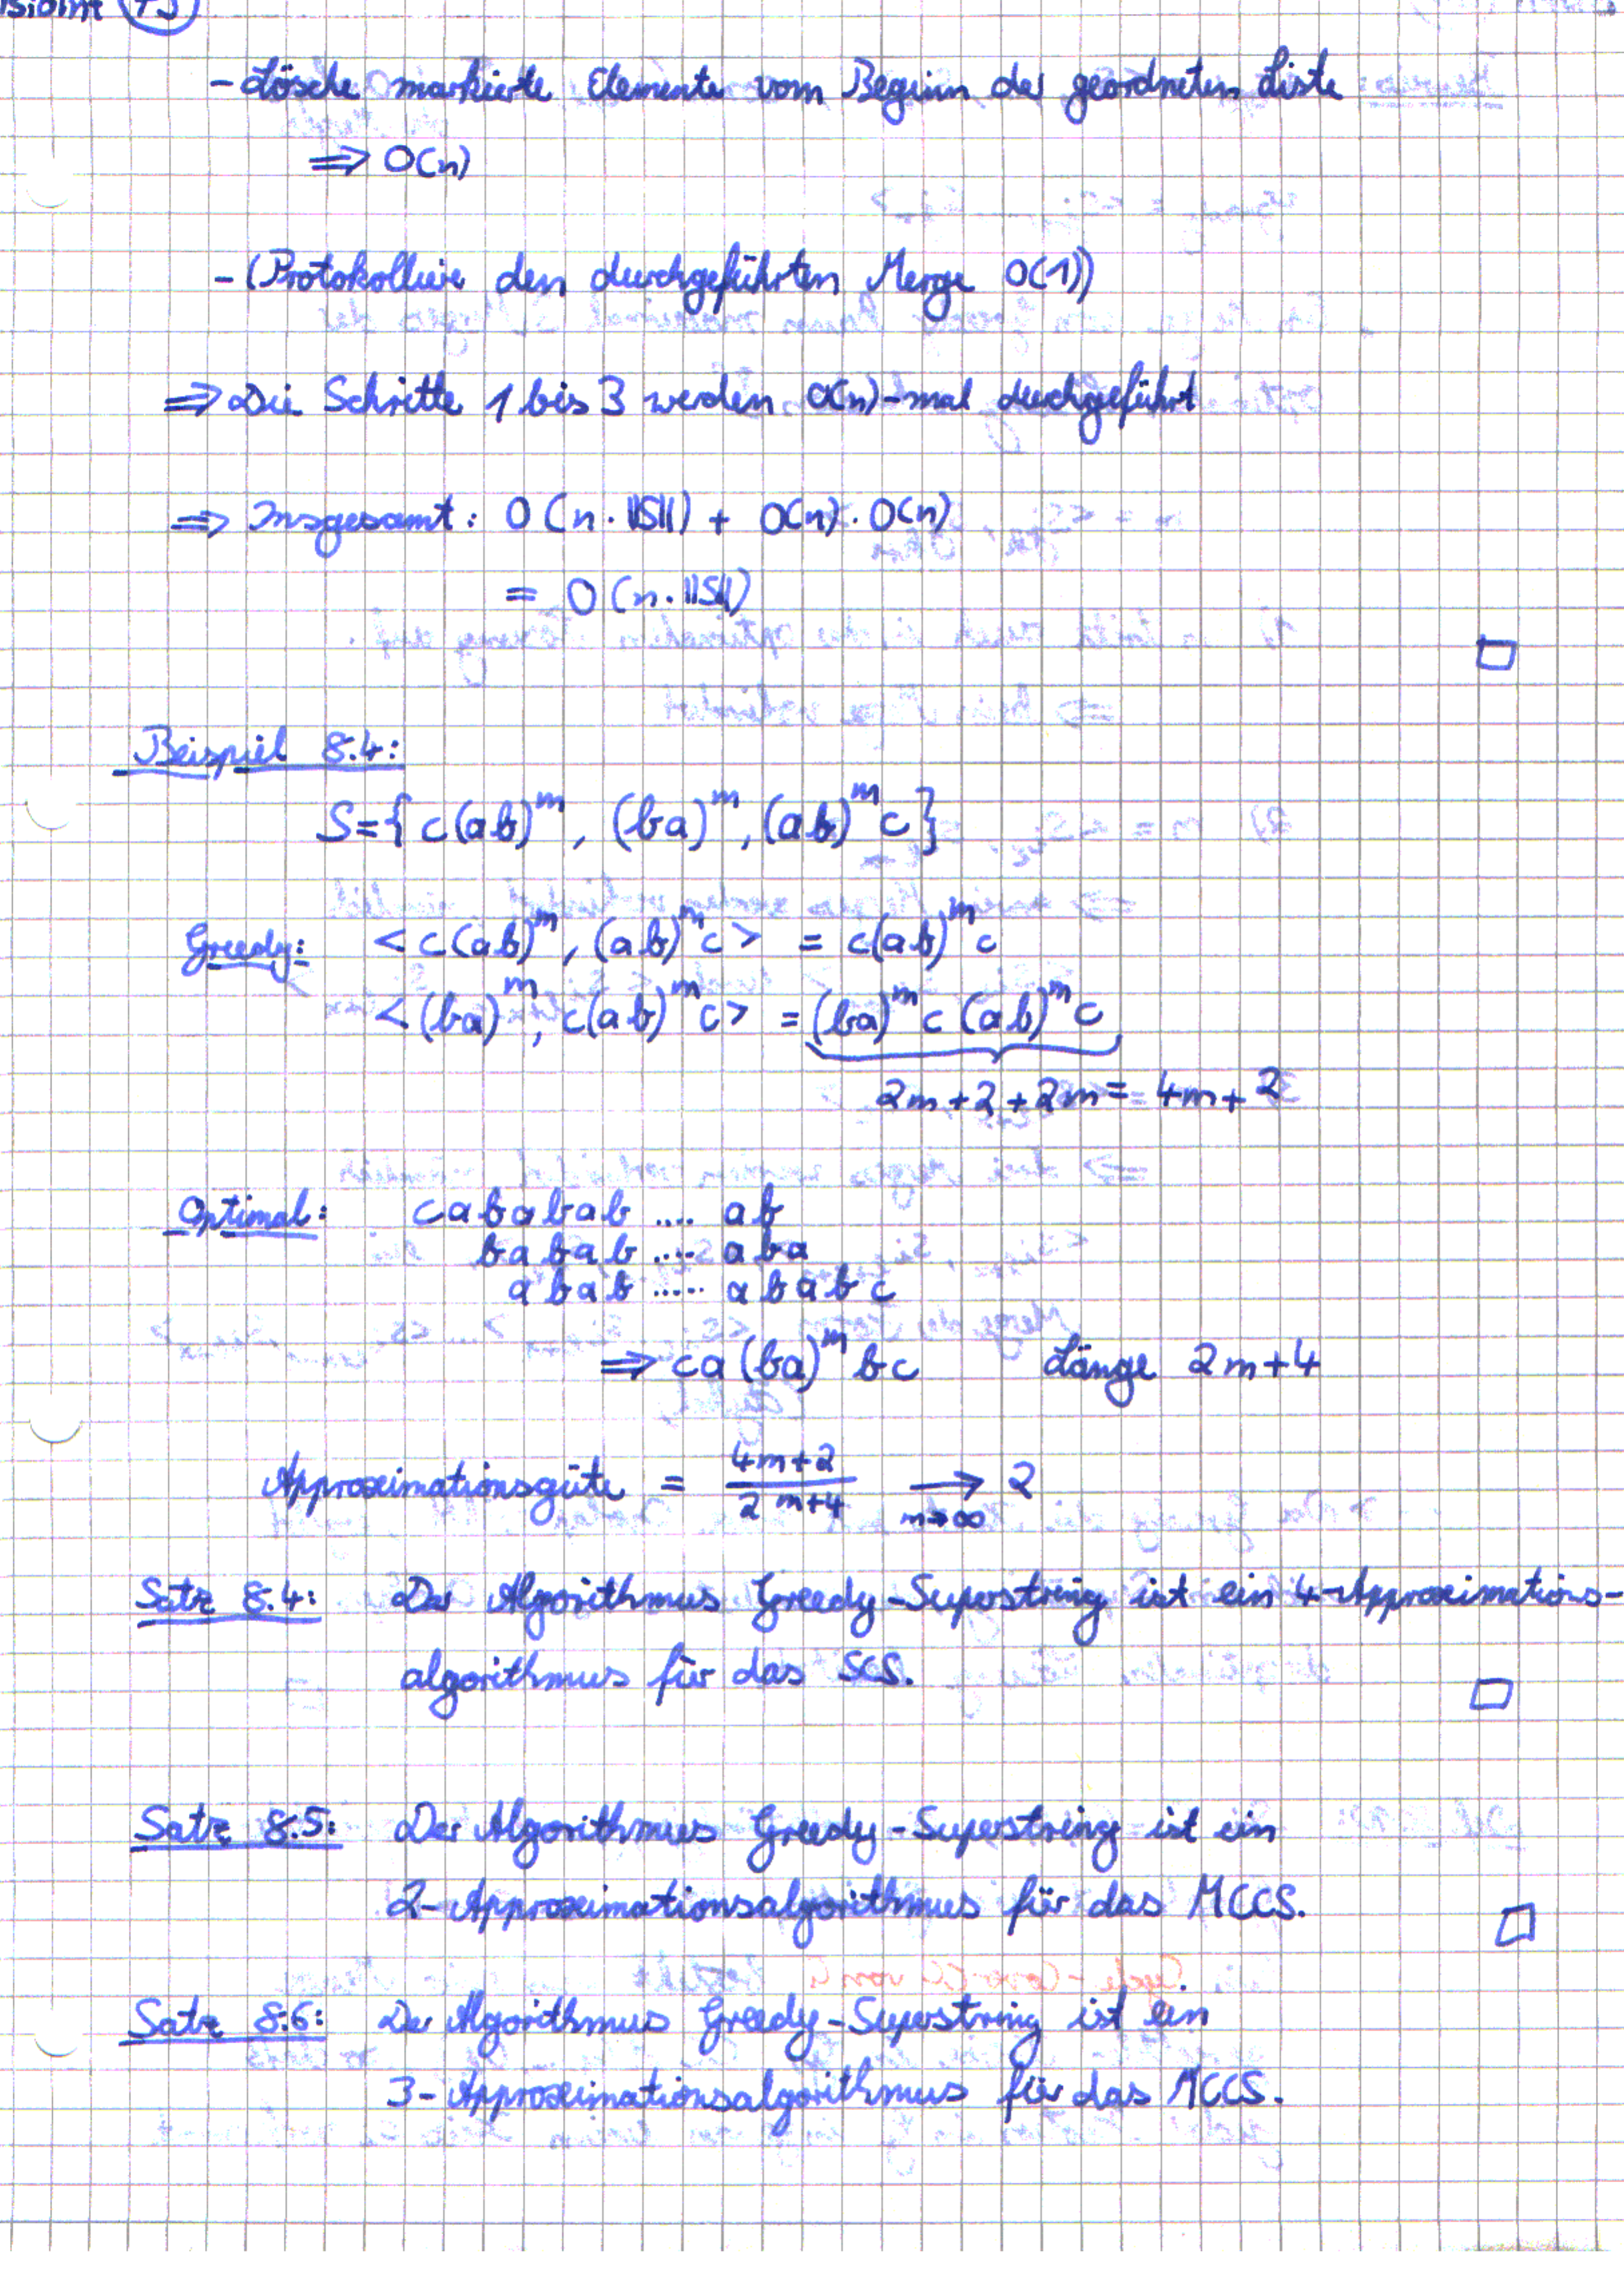 - Lösche markierte Elemente vom Beginn der geordneten Liste
⇒ O(n)
- (Protokolliere den durchgeführten Merge O(1))
⇒ Die Schritte 1 bis 3 werden O(n)-mal durchgeführt
⇒ Insgesamt: O(n · ||S||) + O(n) · O(n)
= O(n · ||S||)
□
Beispiel 8.4:
S = { c(ab)^m, (ba)^m, (ab)^m c }
Greedy: < c(ab)^m, (ab)^m c > = c(ab)^m c
< (ba)^m, c(ab)^m c > = (ba)^m c (ab)^m c
2m+2+2m = 4m+2
Optimal: c a b a b a b .... a b
b a b a b .... a b a
a b a b ..... a b a b c
⇒ c a (ba)^m b c Länge 2m+4
Approximationsgüte = (4m+2)/(2m+4) →_{m→∞} 2
Satz 8.4: Der Algorithmus Greedy-Superstring ist ein 4-Approximations-
algorithmus für das SCS.
□
Satz 8.5: Der Algorithmus Greedy-Superstring ist ein
2-Approximationsalgorithmus für das MCCS.
□
Satz 8.6: Der Algorithmus Greedy-Superstring ist ein
3-Approximationsalgorithmus für das MCCS.